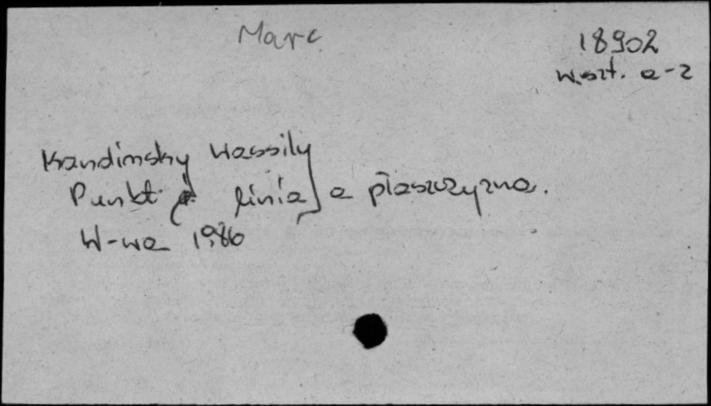 Marc
18902
W.szt. a-z
Kandinsky Wassily
Punkt i linia a płaszczyzna.
W-wa 1986